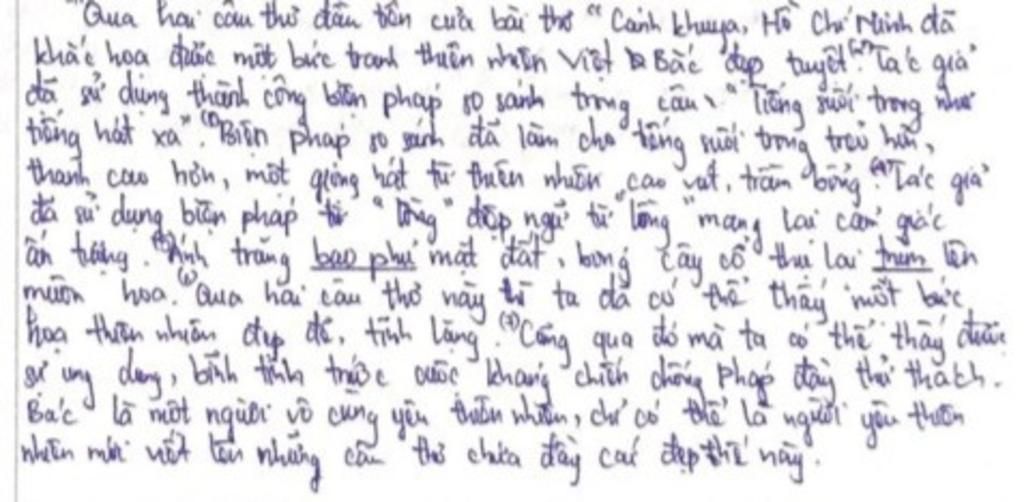 "Qua hai câu thơ đầu tiên của bài thơ "Cảnh khuya, Hồ Chí Minh đã
khắc họa được một bức tranh thiên nhiên Việt Bắc đẹp tuyệt. Tác giả
đã sử dụng thành công biện pháp so sánh trong câu, "Tiếng suối trong như
tiếng hát xa". Biện pháp so sánh đã làm cho tiếng suối trong trẻo hơn,
thanh cao hơn, một giọng hát từ thiên nhiên cao vút, trầm bổng. (4) Tác giả
đã sử dụng biện pháp từ "lồng" điệp ngữ từ "lồng" mang lại cảm giác
ấn tượng. (5) Ánh trăng bao phủ mặt đất, bóng cây cổ thụ lại trùm lên
muôn hoa. Qua hai câu thơ này ta đã có thể thấy một bức
họa thiên nhiên đẹp đẽ, tĩnh lặng. (7) Cũng qua đó mà ta có thể thấy được
sự ung dung, bình tĩnh trước cuộc kháng chiến chống Pháp đầy thử thách.
Bác là một người vô cùng yêu thiên nhiên, chỉ có thể là người yêu thiên
nhiên mới viết lên những câu thơ chứa đầy cái đẹp thế này.